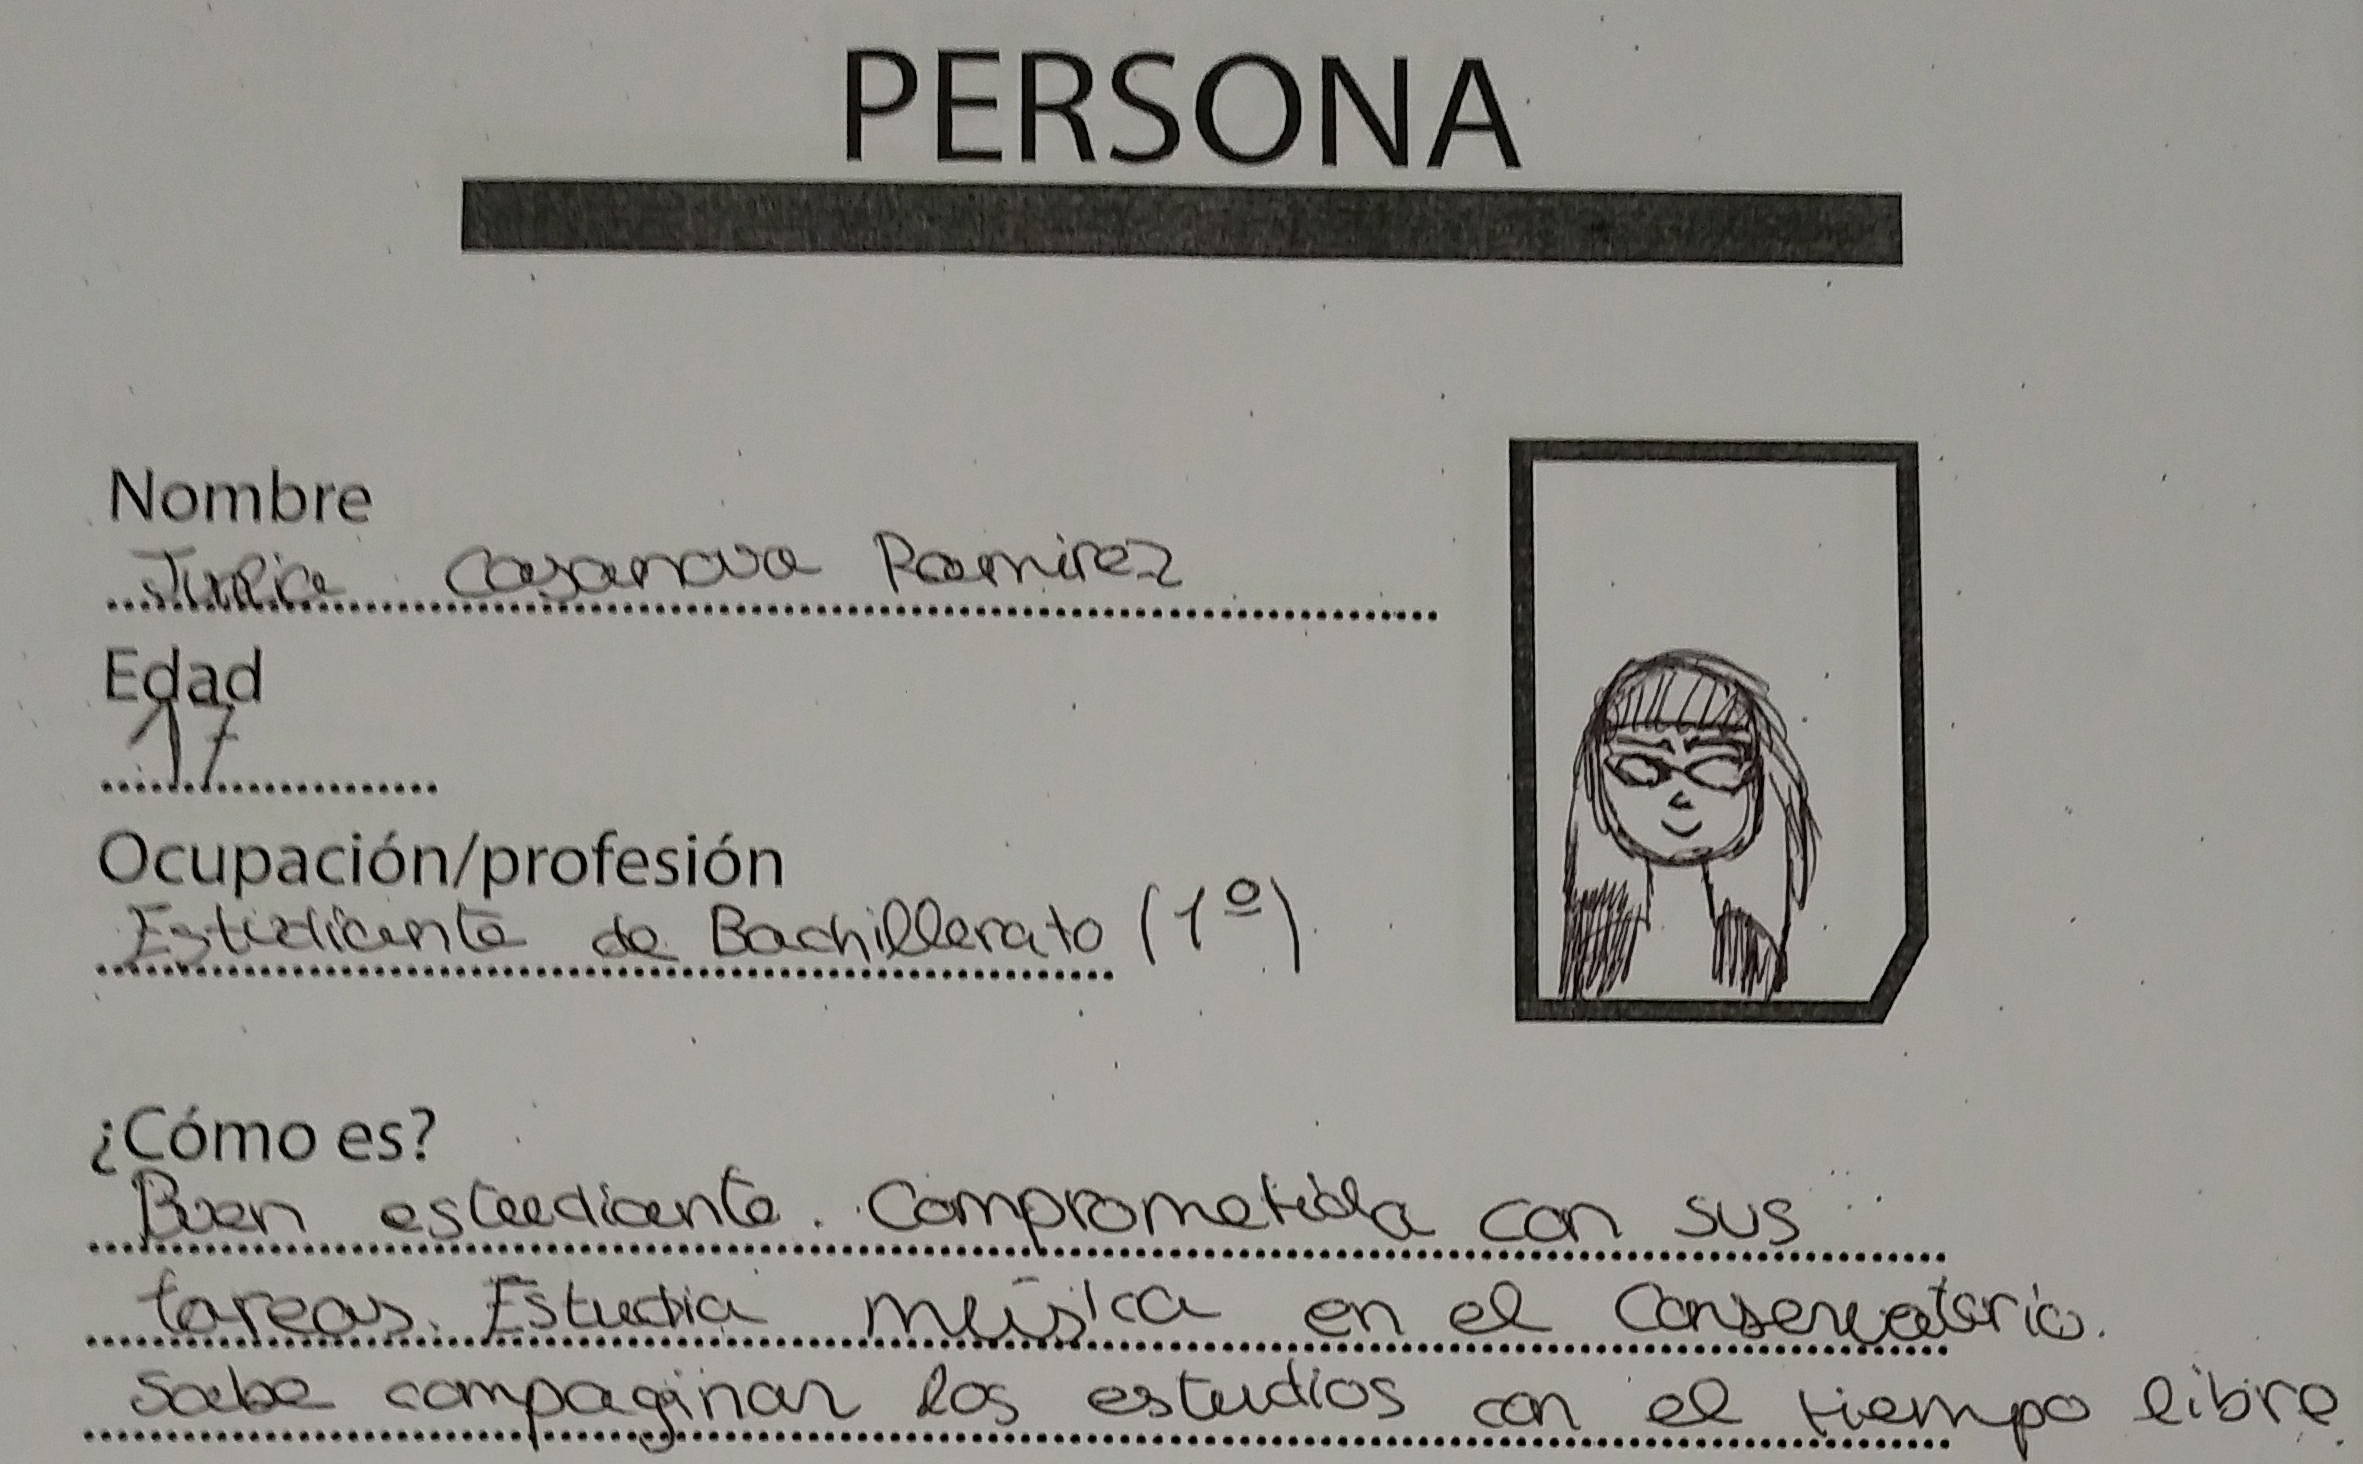 PERSONA
Nombre
Julia Casanova Ramirez
Edad
17
Ocupación/profesión
Estudiante de Bachillerato (1º)
¿Cómo es?
Buen estudiante. Comprometida con sus
tareas. Estudia música en el Conservatorio.
Sabe compaginar los estudios con el tiempo libre.